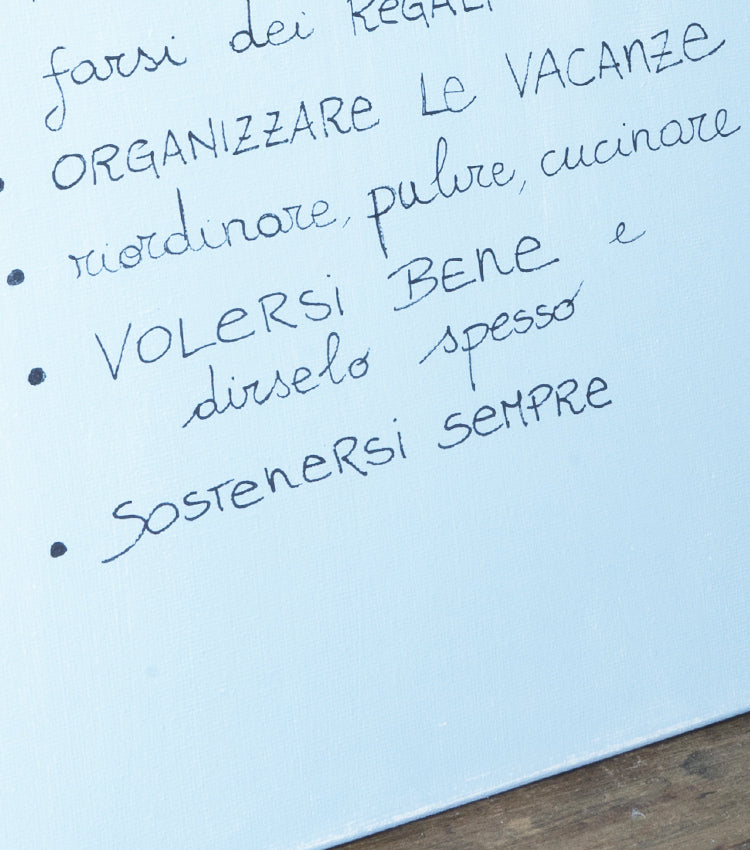 farsi dei REGALI
• ORGANIZZARE LE VACANZE
• riordinare, pulire, cucinare
• VOLERSI BENE e
dirselo spesso
• SOSTENERSI SEMPRE